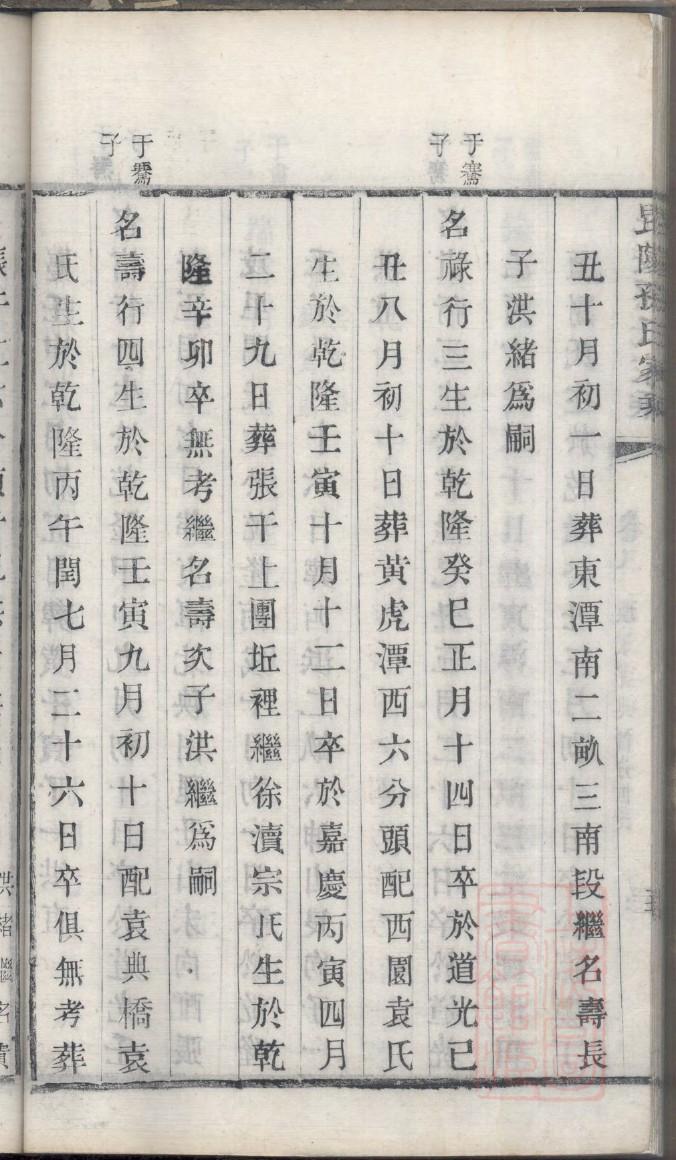 丑十月初一日葬東潭南二畝三南段繼名壽長
子洪緒爲嗣
于騫子
名祿行三生於乾隆癸巳正月十四日卒於道光已
丑八月初十日葬黃虎潭西六分頭配西園袁氏
生於乾隆壬寅十月十二日卒於嘉慶丙寅四月
二十九日葬張干上團坵裡繼徐瀆宗氏生於乾
隆辛卯卒無考繼名壽次子洪繼爲嗣
于騫子
名壽行四生於乾隆壬寅九月初十日配袁典橋袁
氏生於乾隆丙午閏七月二十六日卒俱無考葬
洪緒